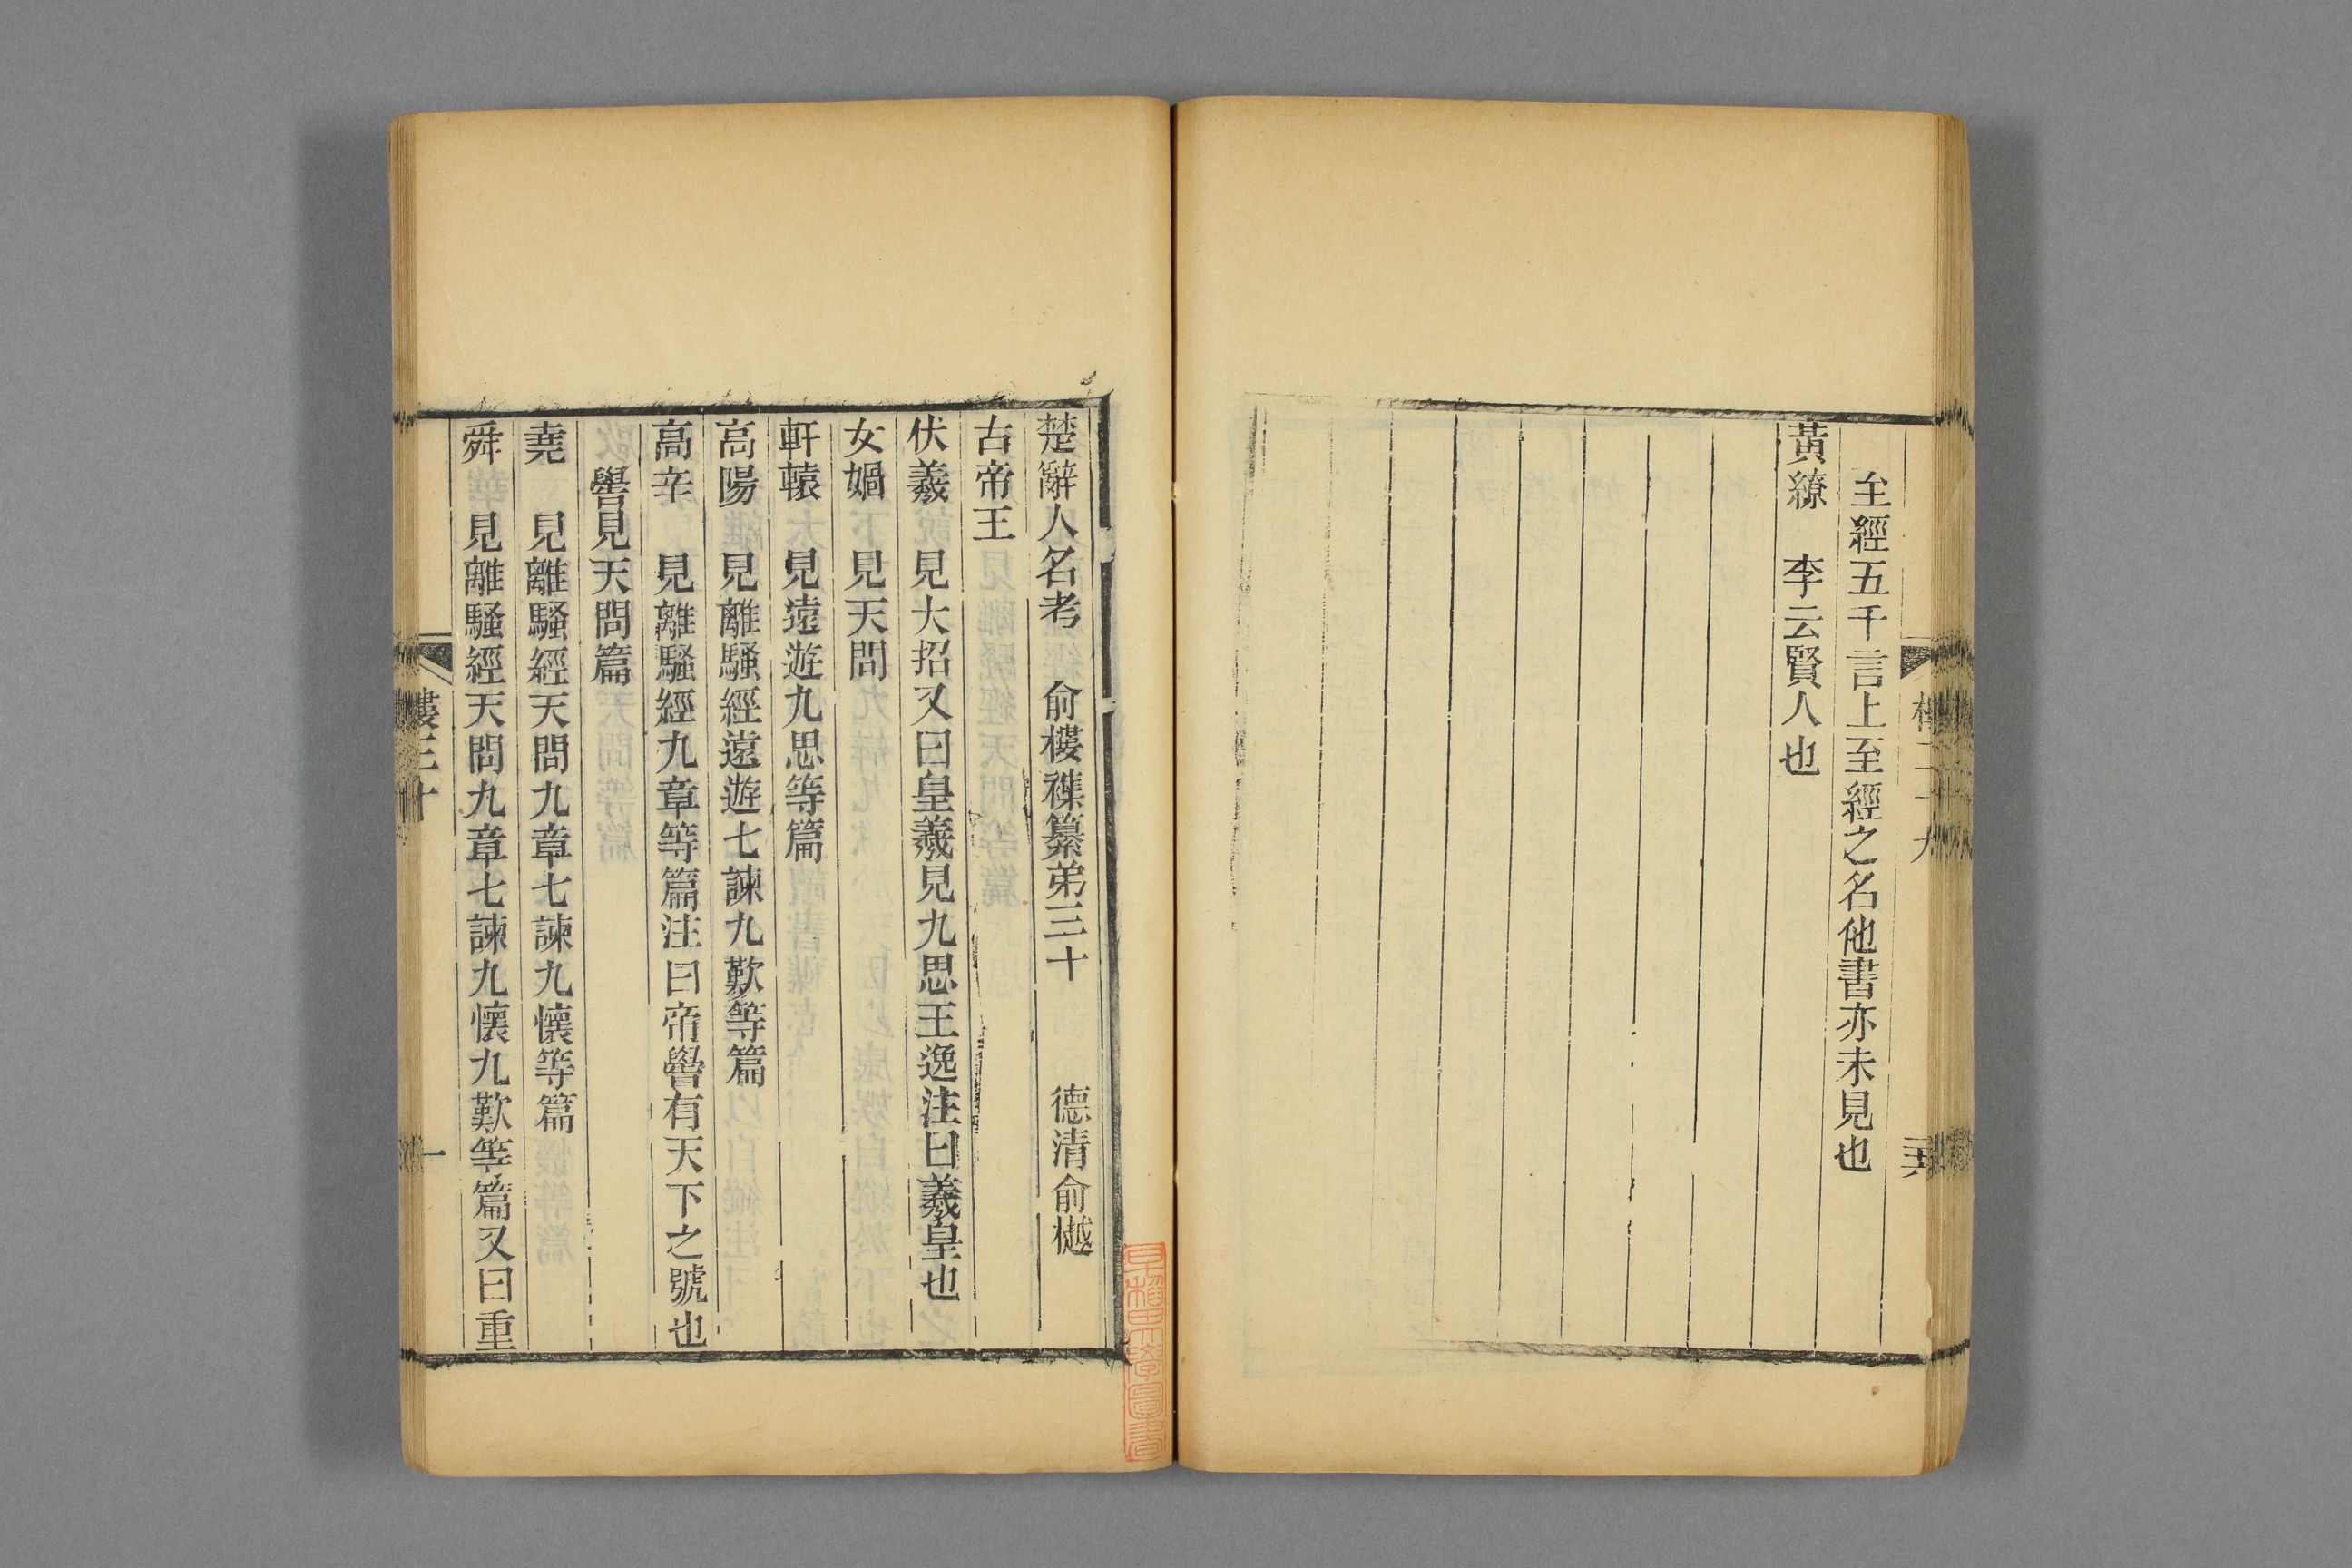 至經五千言上至經之名他書亦未見也
黃繚　李云賢人也
楚辭人名考　俞樓襍纂弟三十　德清俞樾
古帝王
伏羲　見大招又曰皇羲見九思王逸注曰羲皇也
女媧　見天問
軒轅　見遠遊九思等篇
高陽　見離騷經遠遊七諫九歎等篇
高辛　見離騷經九章等篇注曰帝嚳有天下之號也
嚳見天問篇
堯　見離騷經天問九章七諫九懷等篇
舜　見離騷經天問九章七諫九懷九歎等篇又曰重
樓三十
一